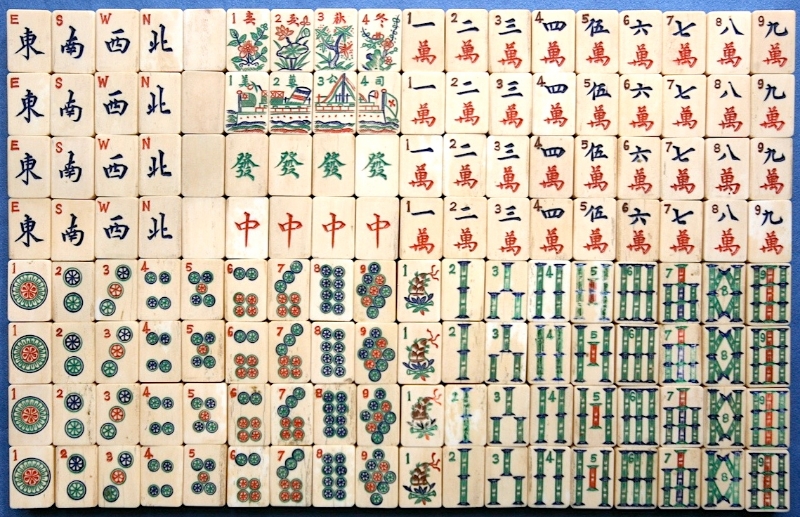 E 東 S 南 W 西 N 北 1 春 2 夏 3 秋 4 冬 1 一萬 2 二萬 3 三萬 4 四萬 5 伍萬 6 六萬 7 七萬 8 八萬 9 九萬
E 東 S 南 W 西 N 北 1 美 2 華 3 公 4 司 1 一萬 2 二萬 3 三萬 4 四萬 5 伍萬 6 六萬 7 七萬 8 八萬 9 九萬
E 東 S 南 W 西 N 北 發 發 發 發 1 一萬 2 二萬 3 三萬 4 四萬 5 伍萬 6 六萬 7 七萬 8 八萬 9 九萬
E 東 S 南 W 西 N 北 中 中 中 中 1 一萬 2 二萬 3 三萬 4 四萬 5 伍萬 6 六萬 7 七萬 8 八萬 9 九萬
1 2 3 4 5 6 7 8 9 1 2 3 4 5 6 7 8 9
1 2 3 4 5 6 7 8 9 1 2 3 4 5 6 7 8 9
1 2 3 4 5 6 7 8 9 1 2 3 4 5 6 7 8 9
1 2 3 4 5 6 7 8 9 1 2 3 4 5 6 7 8 9